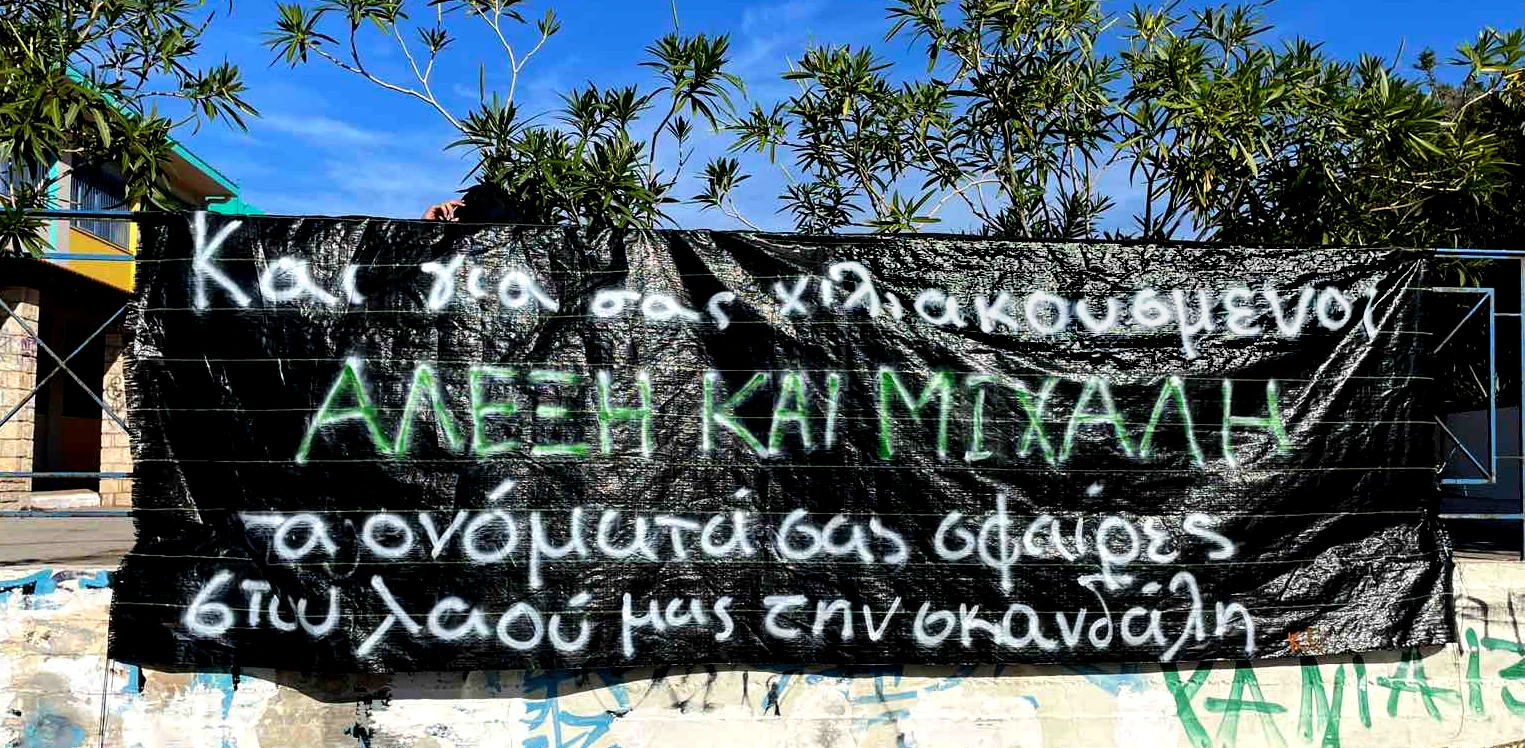 Και για σας χιλιακουσμενοι
ΑΛΕΞΗ ΚΑΙ ΜΙΧΑΛΗ
τα ονόματά σας σφαίρες
στου λαού μας την σκανδάλη
ΧΑΝΙΑ 13